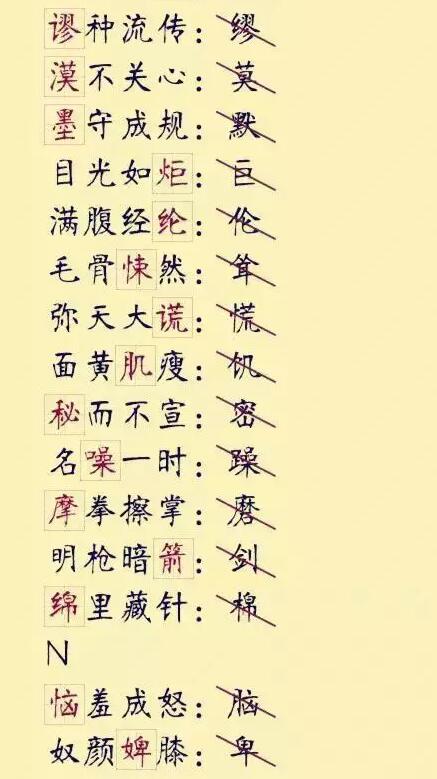 谬种流传：缪
漠不关心：莫
墨守成规：默
目光如炬：巨
满腹经纶：伦
毛骨悚然：耸
弥天大谎：慌
面黄肌瘦：饥
秘而不宣：密
名噪一时：躁
摩拳擦掌：磨
明枪暗箭：剑
绵里藏针：棉
N
恼羞成怒：脑
奴颜婢膝：卑